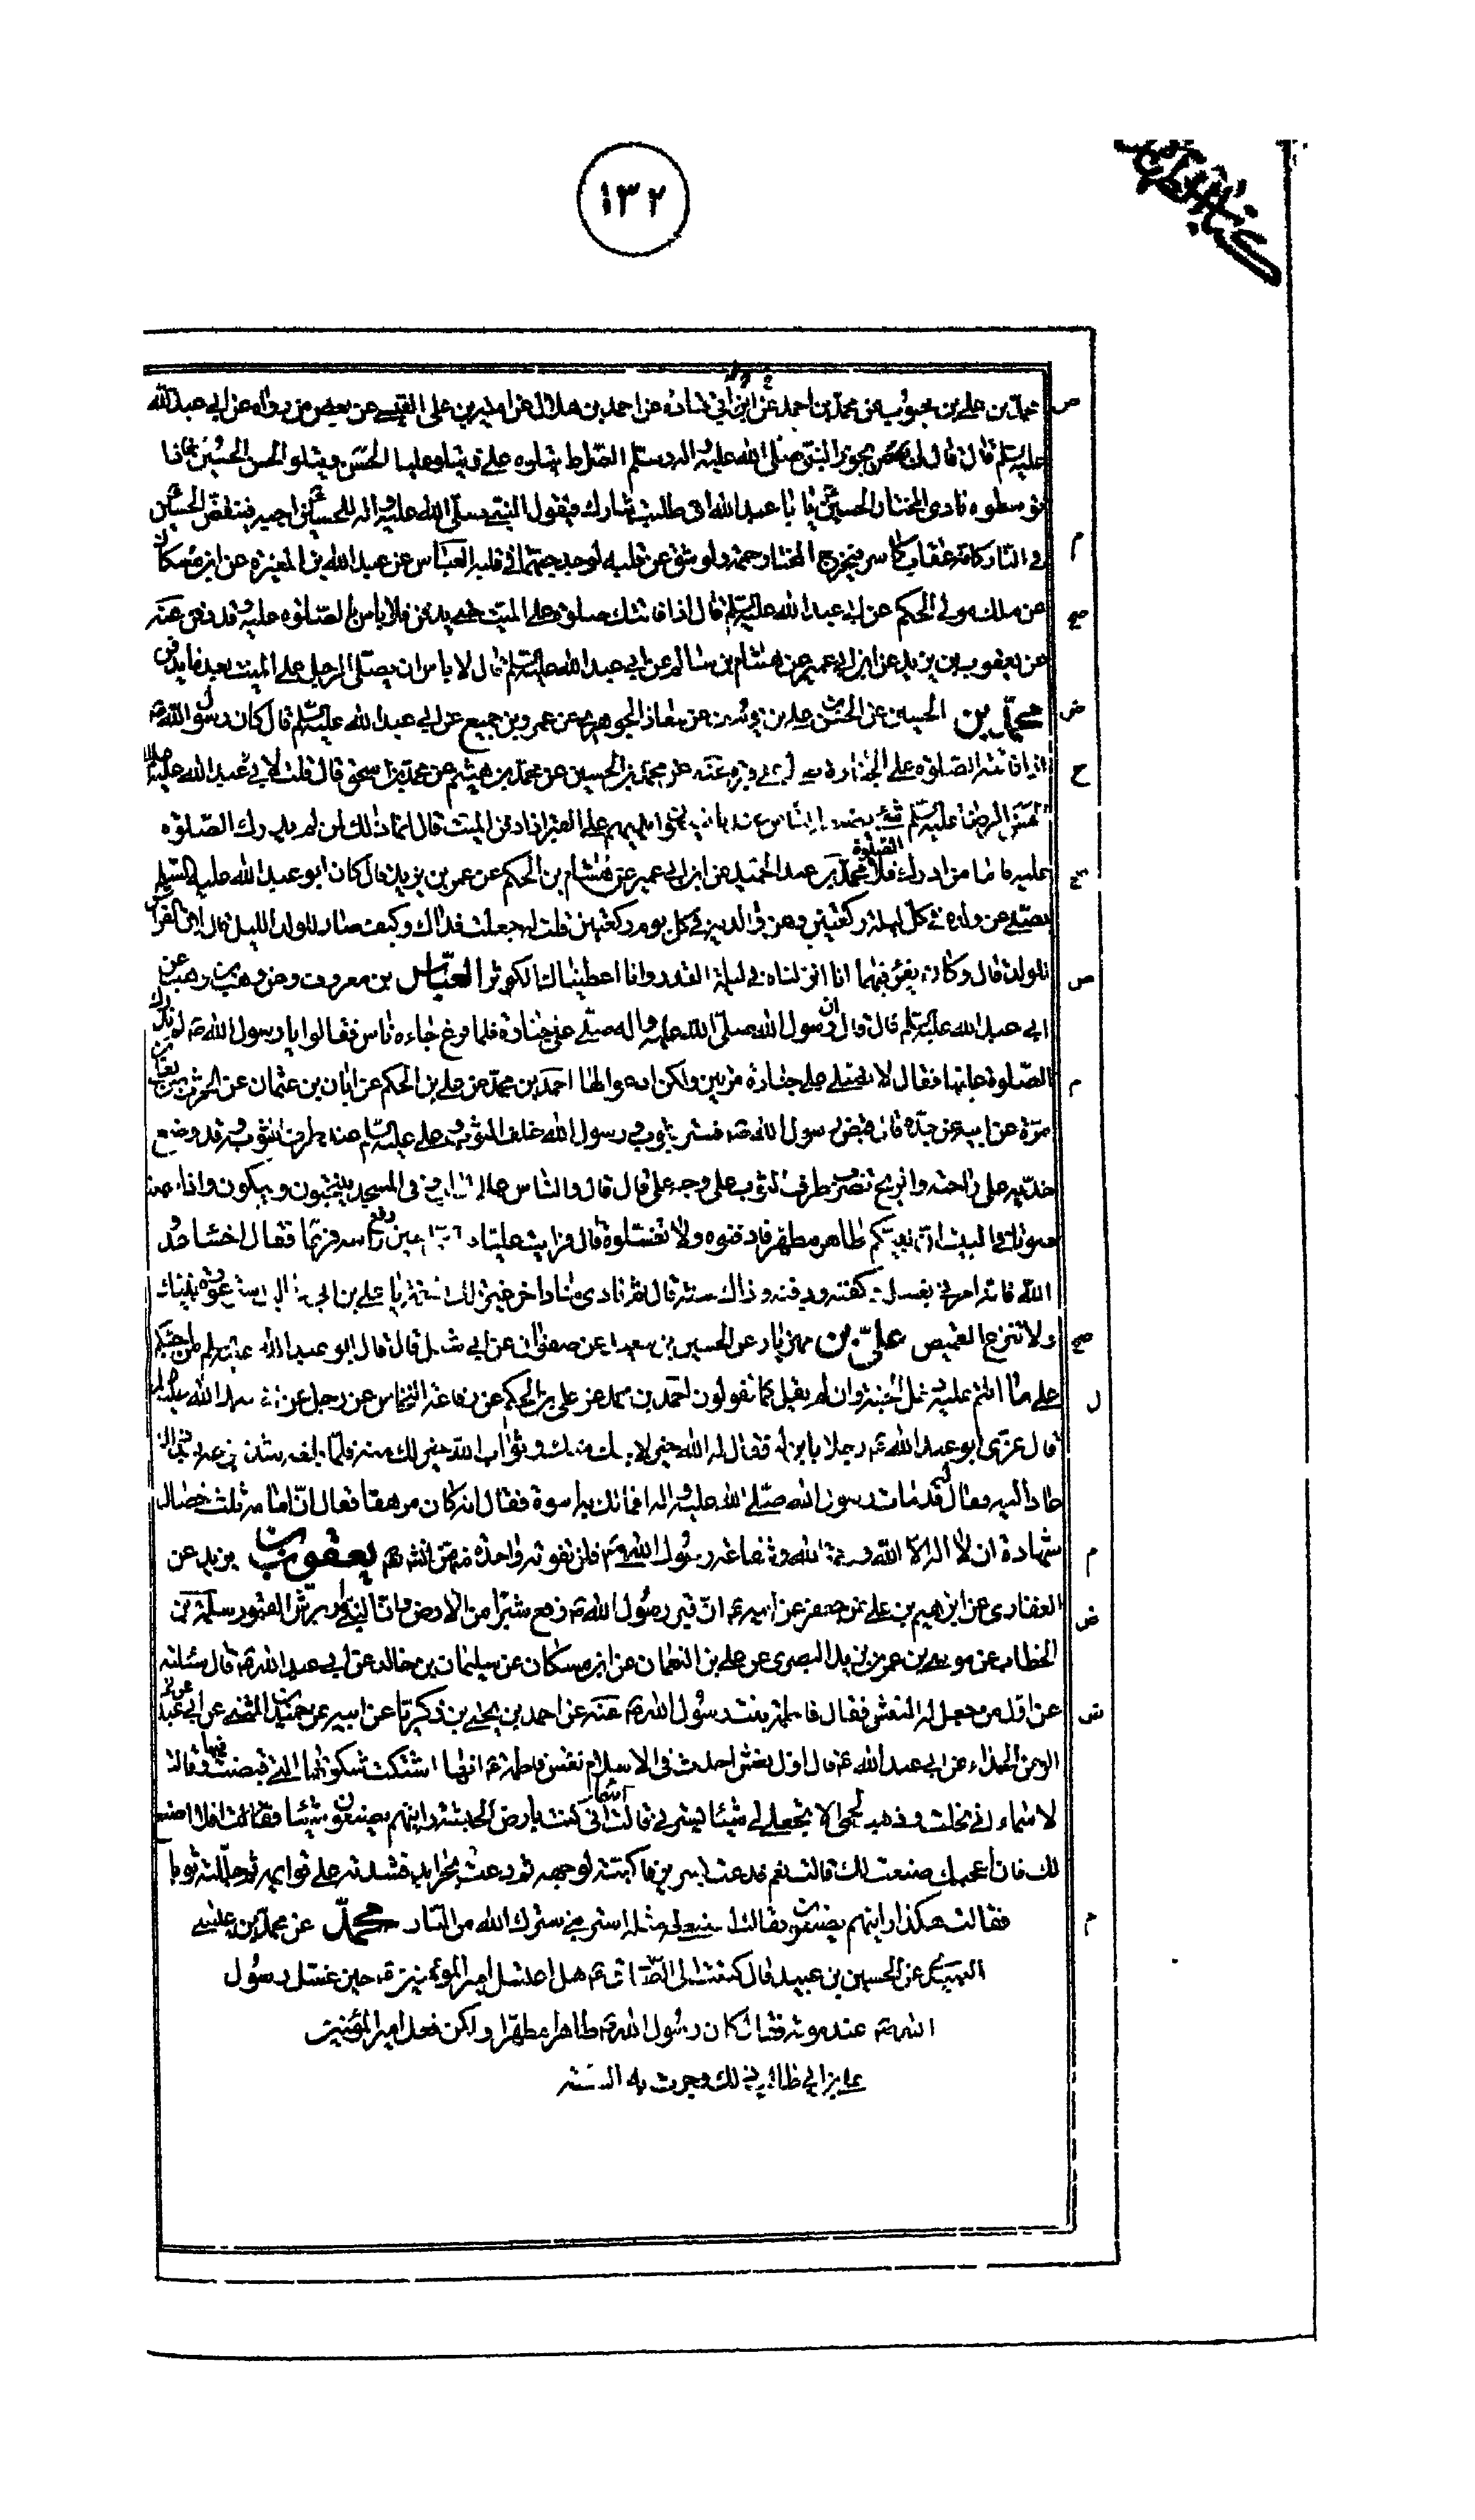 ١٣٢
محمد بن علي بن محبوب عن محمد بن احمد عن ابي قتادة عن احمد بن هلال عن امية بن علي القيسي عن بعض من رواه عن ابي عبد الله
عليه السلم قال قال لي يجوز النبي صلى الله عليه واله وسلم الصراط يتلوه علي ويتلو عليا الحسن ويتلو الحسن الحسين فاذا
توسطوه نادى المختار الحسين يا با عبد الله اني طلبت بثارك فيقول النبي صلى الله عليه واله للحسين اجبه فينقض الحسين
في النار كانه عقاب كاسر فيخرج المختار حممة ولو شق عن قلبه لوجد حبهما في قلبه العباس عن عبد الله بن المغيرة عن ابن مسكان
عن ملك مولى الحكم عن ابي عبد الله عليه السلم قال اذا فاتتك صلوة على الميت حتى يدفن فلا باس بالصلوة عليه وقد دفن عنه
عن يعقوب بن يزيد عن ابن ابي عمير عن هشام بن سالم عن ابي عبد الله عليه السلم قال لا باس ان يصلي الرجل على الميت بعد ما يدفن
محمد بن الحسين عن الحسن بن علي بن يوسف عن معاذ الجوهري عن عمرو بن جميع عن ابي عبد الله عليه السلم قال كان رسول الله ص
اذا فاتته الصلوة على الجنازة صلى على قبره عنه عن محمد بن الحسين عن محمد بن هيثم عن محمد بن اسحق قال قلت لابي عبد الله عليه السلم
الرضا عليه السلم شيء يصنعه الناس عندنا يضعون ايديهم على القبر اذا دفن الميت قال انما ذلك لمن لم يدرك الصلوة
عليه فاما من ادرك الصلوة فلا محمد بن عبد الحميد عن ابن ابي عمير عن هشام بن الحكم عن عمر بن يزيد قال كان ابو عبد الله عليه السلم
يصلي عن ولده في كل ليلة ركعتين وعن والديه في كل يوم ركعتين قلت له جعلت فداك وكيف صار للولد الليل قال لان الفراش
للولد قال وكان يقرء فيهما انا انزلناه في ليلة القدر وانا اعطيناك الكوثر العباس بن معروف عن وهب بن وهب عن
ابي عبد الله عليه السلم قال قال ان رسول الله صلى الله عليه واله صلى على جنازة فلما فرغ جاءه ناس فقالوا يا رسول الله ص لم ندرك
الصلوة عليها فقال لا يصلى على جنازة مرتين ولكن ادعوا لها احمد بن محمد عن علي بن الحكم عن ابان بن عثمان عن الحرث بن يعلى بن
مرة عن ابيه عن جده قال قبض رسول الله ص فستر بثوب ورسول الله خلف الثوب وعلي عليه السلم عند طرف الثوب وقد وضع
خديه على راحته والريح تضرب طرف الثوب على وجه علي قال قال والناس على الباب وفي المسجد ينتحبون ويبكون واذا سمعنا
صوتا في البيت ان نبيكم طاهر مطهر فادفنوه ولا تغسلوه قال فرايت عليا حين رفع راسه فزعا فقال اخسا عدو
الله فانه امرني بغسله وكفنه ودفنه وذاك سنة قال ثم نادى مناد اخر غير تلك النغمة يا علي بن ابي طالب استر عورة نبيك
ولا تنزع القميص علي بن مهزيار عن الحسين بن سعيد عن صفوان عن ابي شبل قال قال ابو عبد الله عليه السلم من احبكم
على ما انتم عليه دخل الجنة وان لم يقل كما تقولون احمد بن محمد عن علي بن الحكم عن رفاعة النخاس عن رجل عن ابي عبد الله عليه السلم
قال عزى ابو عبد الله ع رجلا بابن له فقال له الله خير لابنك منك وثواب الله خير لك منه فلما بلغه شدة جزعه بعد ذلك
عاد اليه فقال له قد مات رسول الله صلى الله عليه واله افما لك به اسوة فقال انه كان مرهقا فقال ان امامه ثلث خصال
شهادة ان لا اله الا الله ورحمة الله وشفاعة رسول الله ص فلن تفوته واحدة منهن ان شاء الله يعقوب بن يزيد عن
الغفاري عن ابرهيم بن علي عن جعفر عن ابيه ع ان قبر رسول الله ص رفع شبرا من الارض وان النبي ص امر برش القبور سلمة بن
الخطاب عن موسى بن عمر بن يزيد البصري عن علي بن النعمان عن ابن مسكان عن سليمان بن خالد عن ابي عبد الله ع قال سئلته
عن اول من جعل له النعش فقال فاطمة بنت رسول الله ص عنه عن احمد بن يحيى بن زكريا عن ابيه عن حميد بن المثنى عن ابي عبد
الرحمن الحذاء عن ابي عبد الله ع قال اول نعش احدث في الاسلام نعش فاطمة ع انها اشتكت شكوتها التي قبضت فيها وقالت
لاسماء اني نحلت وذهب لحمي الا تجعلي لي شيئا يسترني قالت اسماء اني كنت بارض الحبشة رايتهم يصنعون شيئا فقالت افلا اصنع
لك فان اعجبك صنعت لك قالت نعم فدعت بسرير فاكبته لوجهه ثم دعت بجرايد فشدته على قوايمه ثم جللته ثوبا
فقالت هكذا رايتهم يصنعون فقالت اصنعي لي مثله استريني سترك الله من النار محمد عن محمد بن عيسى
العبيدي عن الحسين بن عبيد قال كتبت الى الصادق ع هل اغتسل امير المؤمنين ع حين غسل رسول
الله ص عند موته فقال كان رسول الله ص طاهرا مطهرا ولكن فعل امير المؤمنين
علي بن ابي طالب ذلك وجرت به السنة